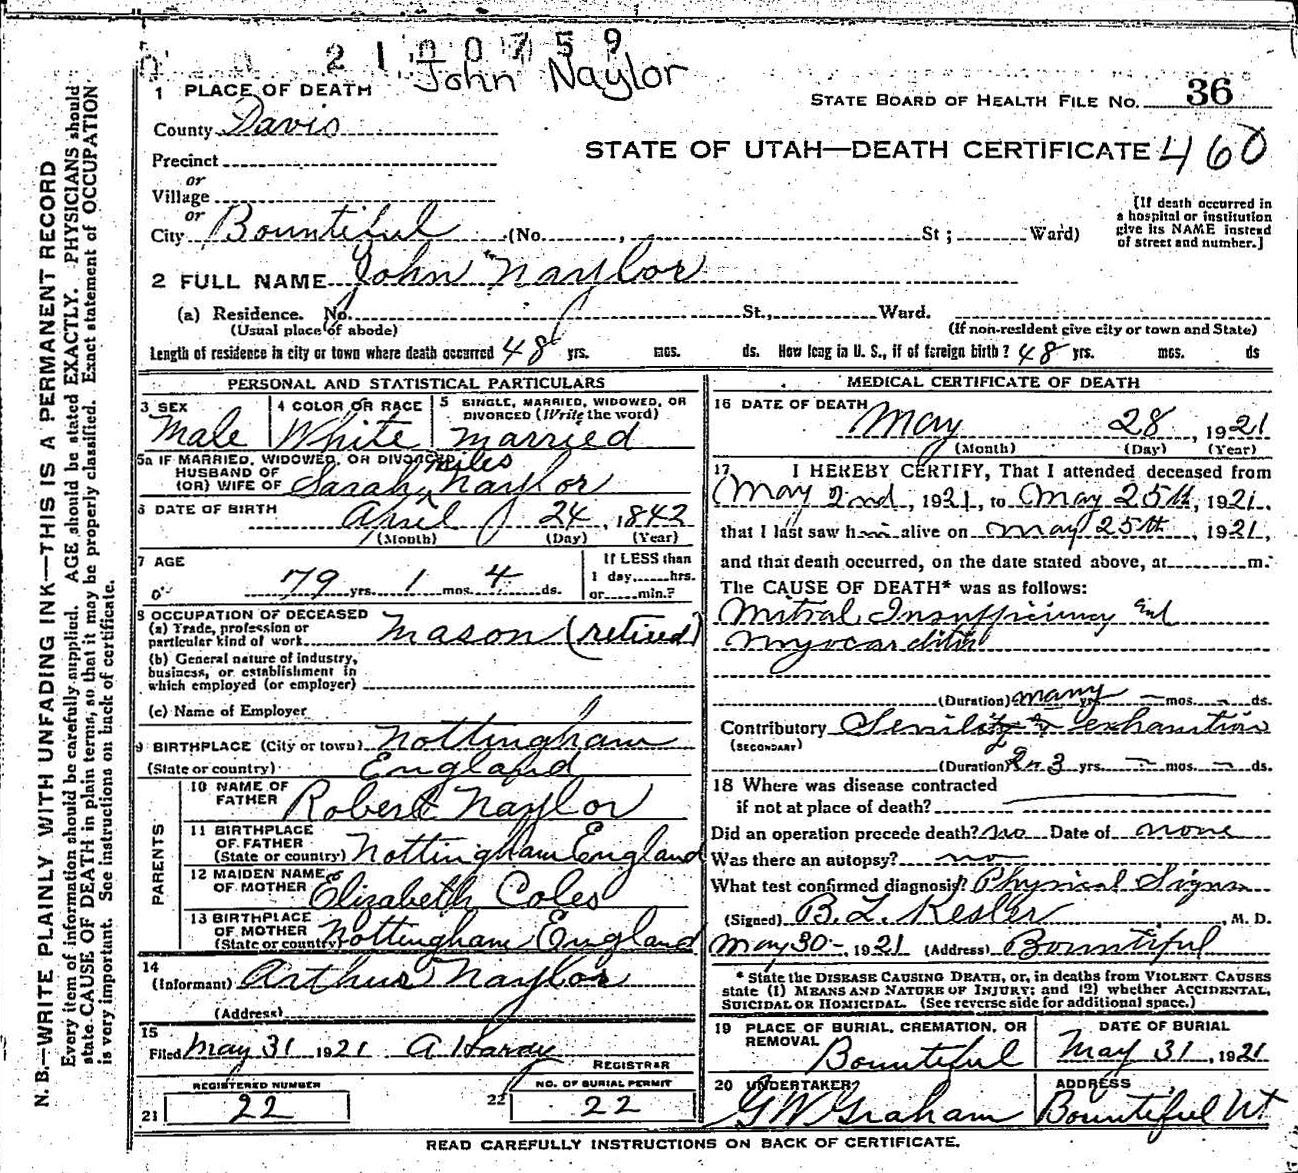 2100759
John Naylor
1 PLACE OF DEATH
STATE BOARD OF HEALTH FILE NO. 36
County Davis
STATE OF UTAH—DEATH CERTIFICATE 460
Precinct
or
Village
or
City Bountiful (No. , St ; Ward)
[If death occurred in
a hospital or institution
give its NAME instead
of street and number.]
2 FULL NAME John Naylor
(a) Residence. No. St., Ward.
(Usual place of abode) (If non-resident give city or town and State)
Length of residence in city or town where death occurred 48 yrs. mos. ds. How long in U. S., if of foreign birth ? 48 yrs. mos. ds
PERSONAL AND STATISTICAL PARTICULARS
3 SEX
Male
4 COLOR OR RACE
White
5 SINGLE, MARRIED, WIDOWED, OR
DIVORCED (Write the word)
married
5a IF MARRIED, WIDOWED, OR DIVORCED
HUSBAND OF
(OR) WIFE OF Sarah Miles Naylor
6 DATE OF BIRTH
April 24, 1842
(Month) (Day) (Year)
7 AGE
79 yrs. 1 mos. 4 ds.
If LESS than
1 day......hrs.
or......min.?
8 OCCUPATION OF DECEASED
(a) Trade, profession or
particular kind of work Mason (retired)
(b) General nature of industry,
business, or establishment in
which employed (or employer)
(c) Name of Employer
9 BIRTHPLACE (City or town) Nottingham
(State or country) England
PARENTS
10 NAME OF
FATHER Robert Naylor
11 BIRTHPLACE
OF FATHER
(State or country) Nottingham England
12 MAIDEN NAME
OF MOTHER Elizabeth Coles
13 BIRTHPLACE
OF MOTHER
(State or country) Nottingham England
14
(Informant) Arthur Naylor
(Address)
15
Filed May 31 1921 A Hardy
REGISTRAR
REGISTERED NUMBER
21 22
NO. OF BURIAL PERMIT
22 22
MEDICAL CERTIFICATE OF DEATH
16 DATE OF DEATH
May 28, 1921
(Month) (Day) (Year)
17 I HEREBY CERTIFY, That I attended deceased from
May 2nd, 1921, to May 25th, 1921.
that I last saw him alive on May 25th, 1921,
and that death occurred, on the date stated above, at m.
The CAUSE OF DEATH* was as follows:
Mitral Insufficiency and
Myocarditis
(Duration) many yrs. — mos. — ds.
Contributory Senility & exhaustion
(SECONDARY)
(Duration) 2 or 3 yrs. — mos. — ds.
18 Where was disease contracted
if not at place of death?
Did an operation precede death? no Date of none
Was there an autopsy? no
What test confirmed diagnosis? Physical Signs
(Signed) B. L. Kesler, M. D.
May 30-, 1921 (Address) Bountiful
* State the DISEASE CAUSING DEATH, or, in deaths from VIOLENT CAUSES
state (1) MEANS AND NATURE OF INJURY; and (2) whether ACCIDENTAL,
SUICIDAL OR HOMICIDAL. (See reverse side for additional space.)
19 PLACE OF BURIAL, CREMATION, OR
REMOVAL
Bountiful
DATE OF BURIAL
May 31, 1921
20 UNDERTAKER
GW Graham
ADDRESS
Bountiful Ut
READ CAREFULLY INSTRUCTIONS ON BACK OF CERTIFICATE.
N. B.—WRITE PLAINLY WITH UNFADING INK—THIS IS A PERMANENT RECORD
Every item of information should be carefully supplied. AGE should be stated EXACTLY. PHYSICIANS should
state CAUSE OF DEATH in plain terms, so that it may be properly classified. Exact statement of OCCUPATION
is very important. See instructions on back of certificate.